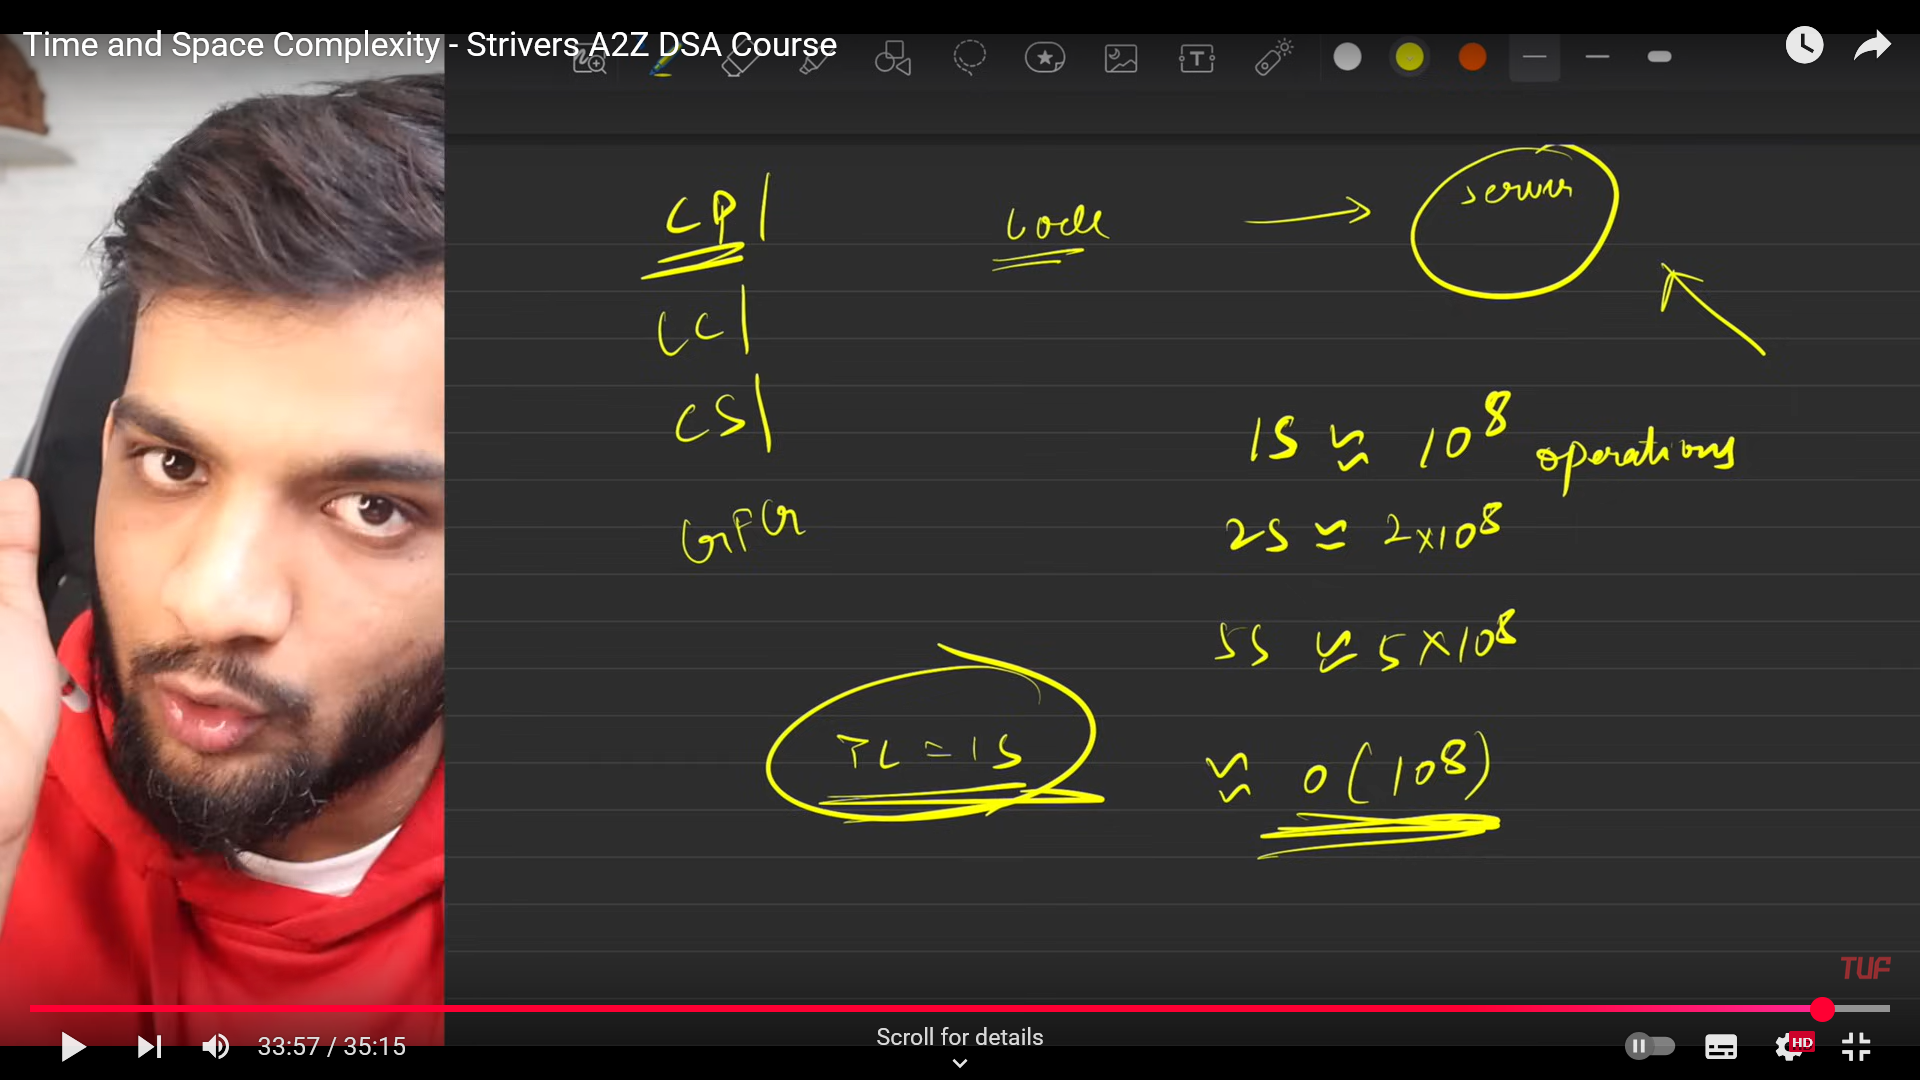 Time and Space Complexity - Strivers A2Z DSA Course
CP| code → server
LC|
CS|
GFG
1S ≈ 10^8 operations
2S ≈ 2×10^8
5S ≈ 5×10^8
TL = 1S ≈ O(10^8)
TUF
33:57 / 35:15
Scroll for details
HD